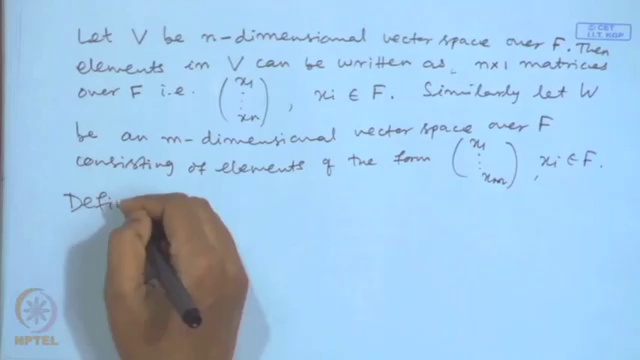 © CET
I.I.T. KGP
Let V be n-dimensional vector space over F. Then
elements in V can be written as, n×1 matrices
over F i.e. (x1 ⋮ xn), xi ∈ F. Similarly let W
be an m-dimensional vector space over F
consisting of elements of the form (x1 ⋮ xm), xi ∈ F.
Defin
NPTEL